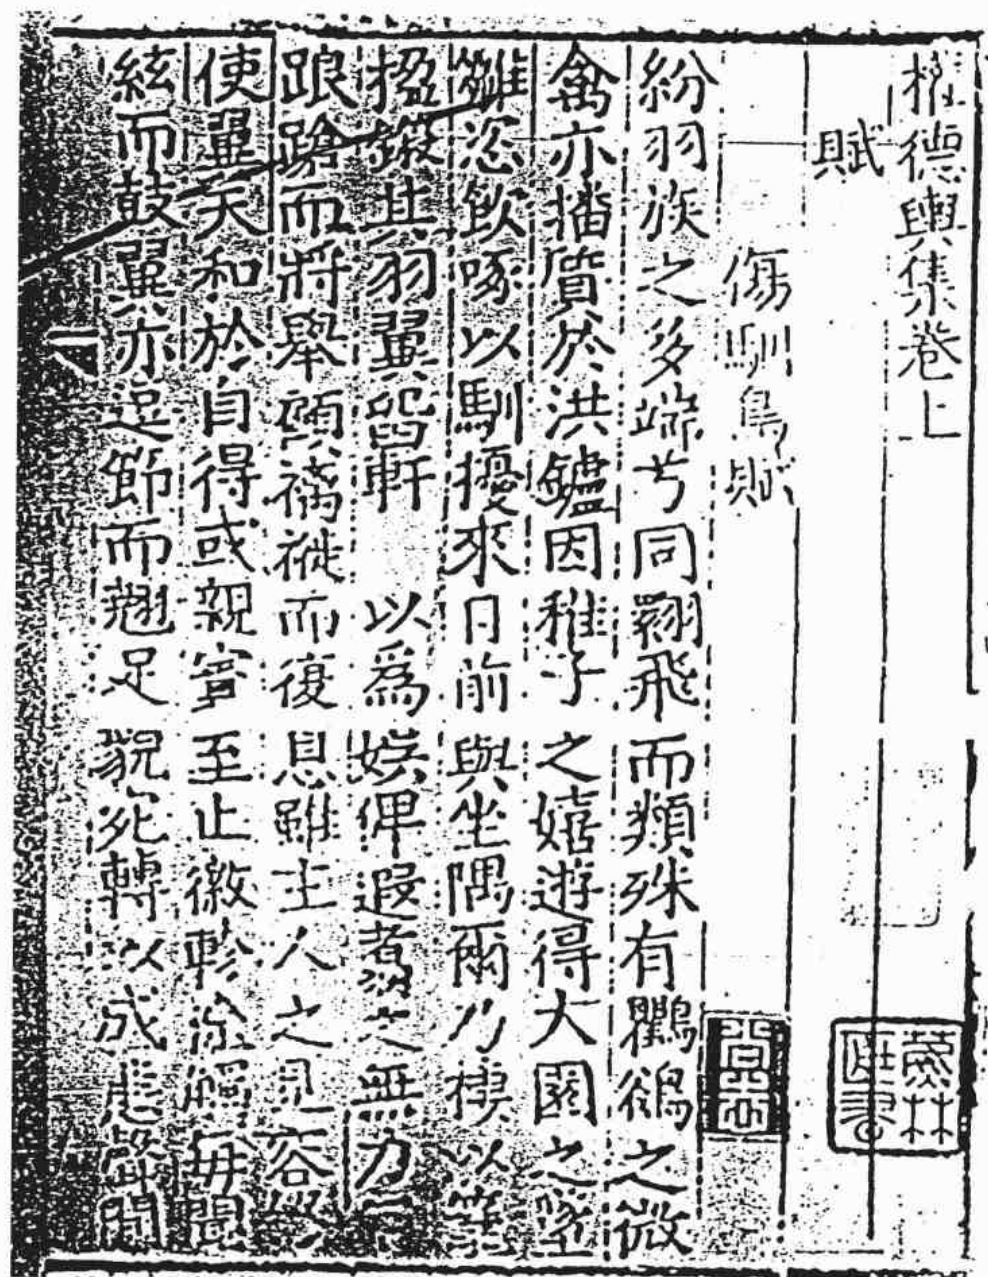 權德輿集卷上
賦
傷馴鳥賦
紛羽族之多端兮同翾飛而類殊有鸜鵒之微
禽亦播質於洪鑪因稚子之嬉遊得大園之墜
雛恣飲啄以馴擾來目前與坐隅爾乃棲以
搖鎩其羽翼留軒以爲娛俾遐者之無力
踉蹌而將舉頭褵褷而復息雖主人之見容
使畢天和於自得或親賓至止徽軫塗觴每聞
絃而鼓翼亦逗節而翹足貌宛轉以成態聲間
蕉林